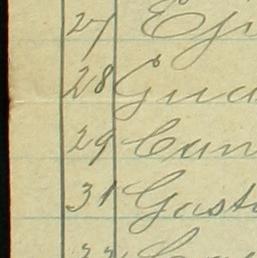 27 Eji
28 Gua
29 Can
31 Gast